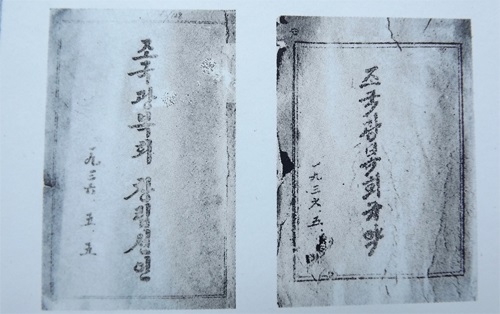 조국광복회 창립선언
一九三六 五 五
조국광복회규약
一九三六 五